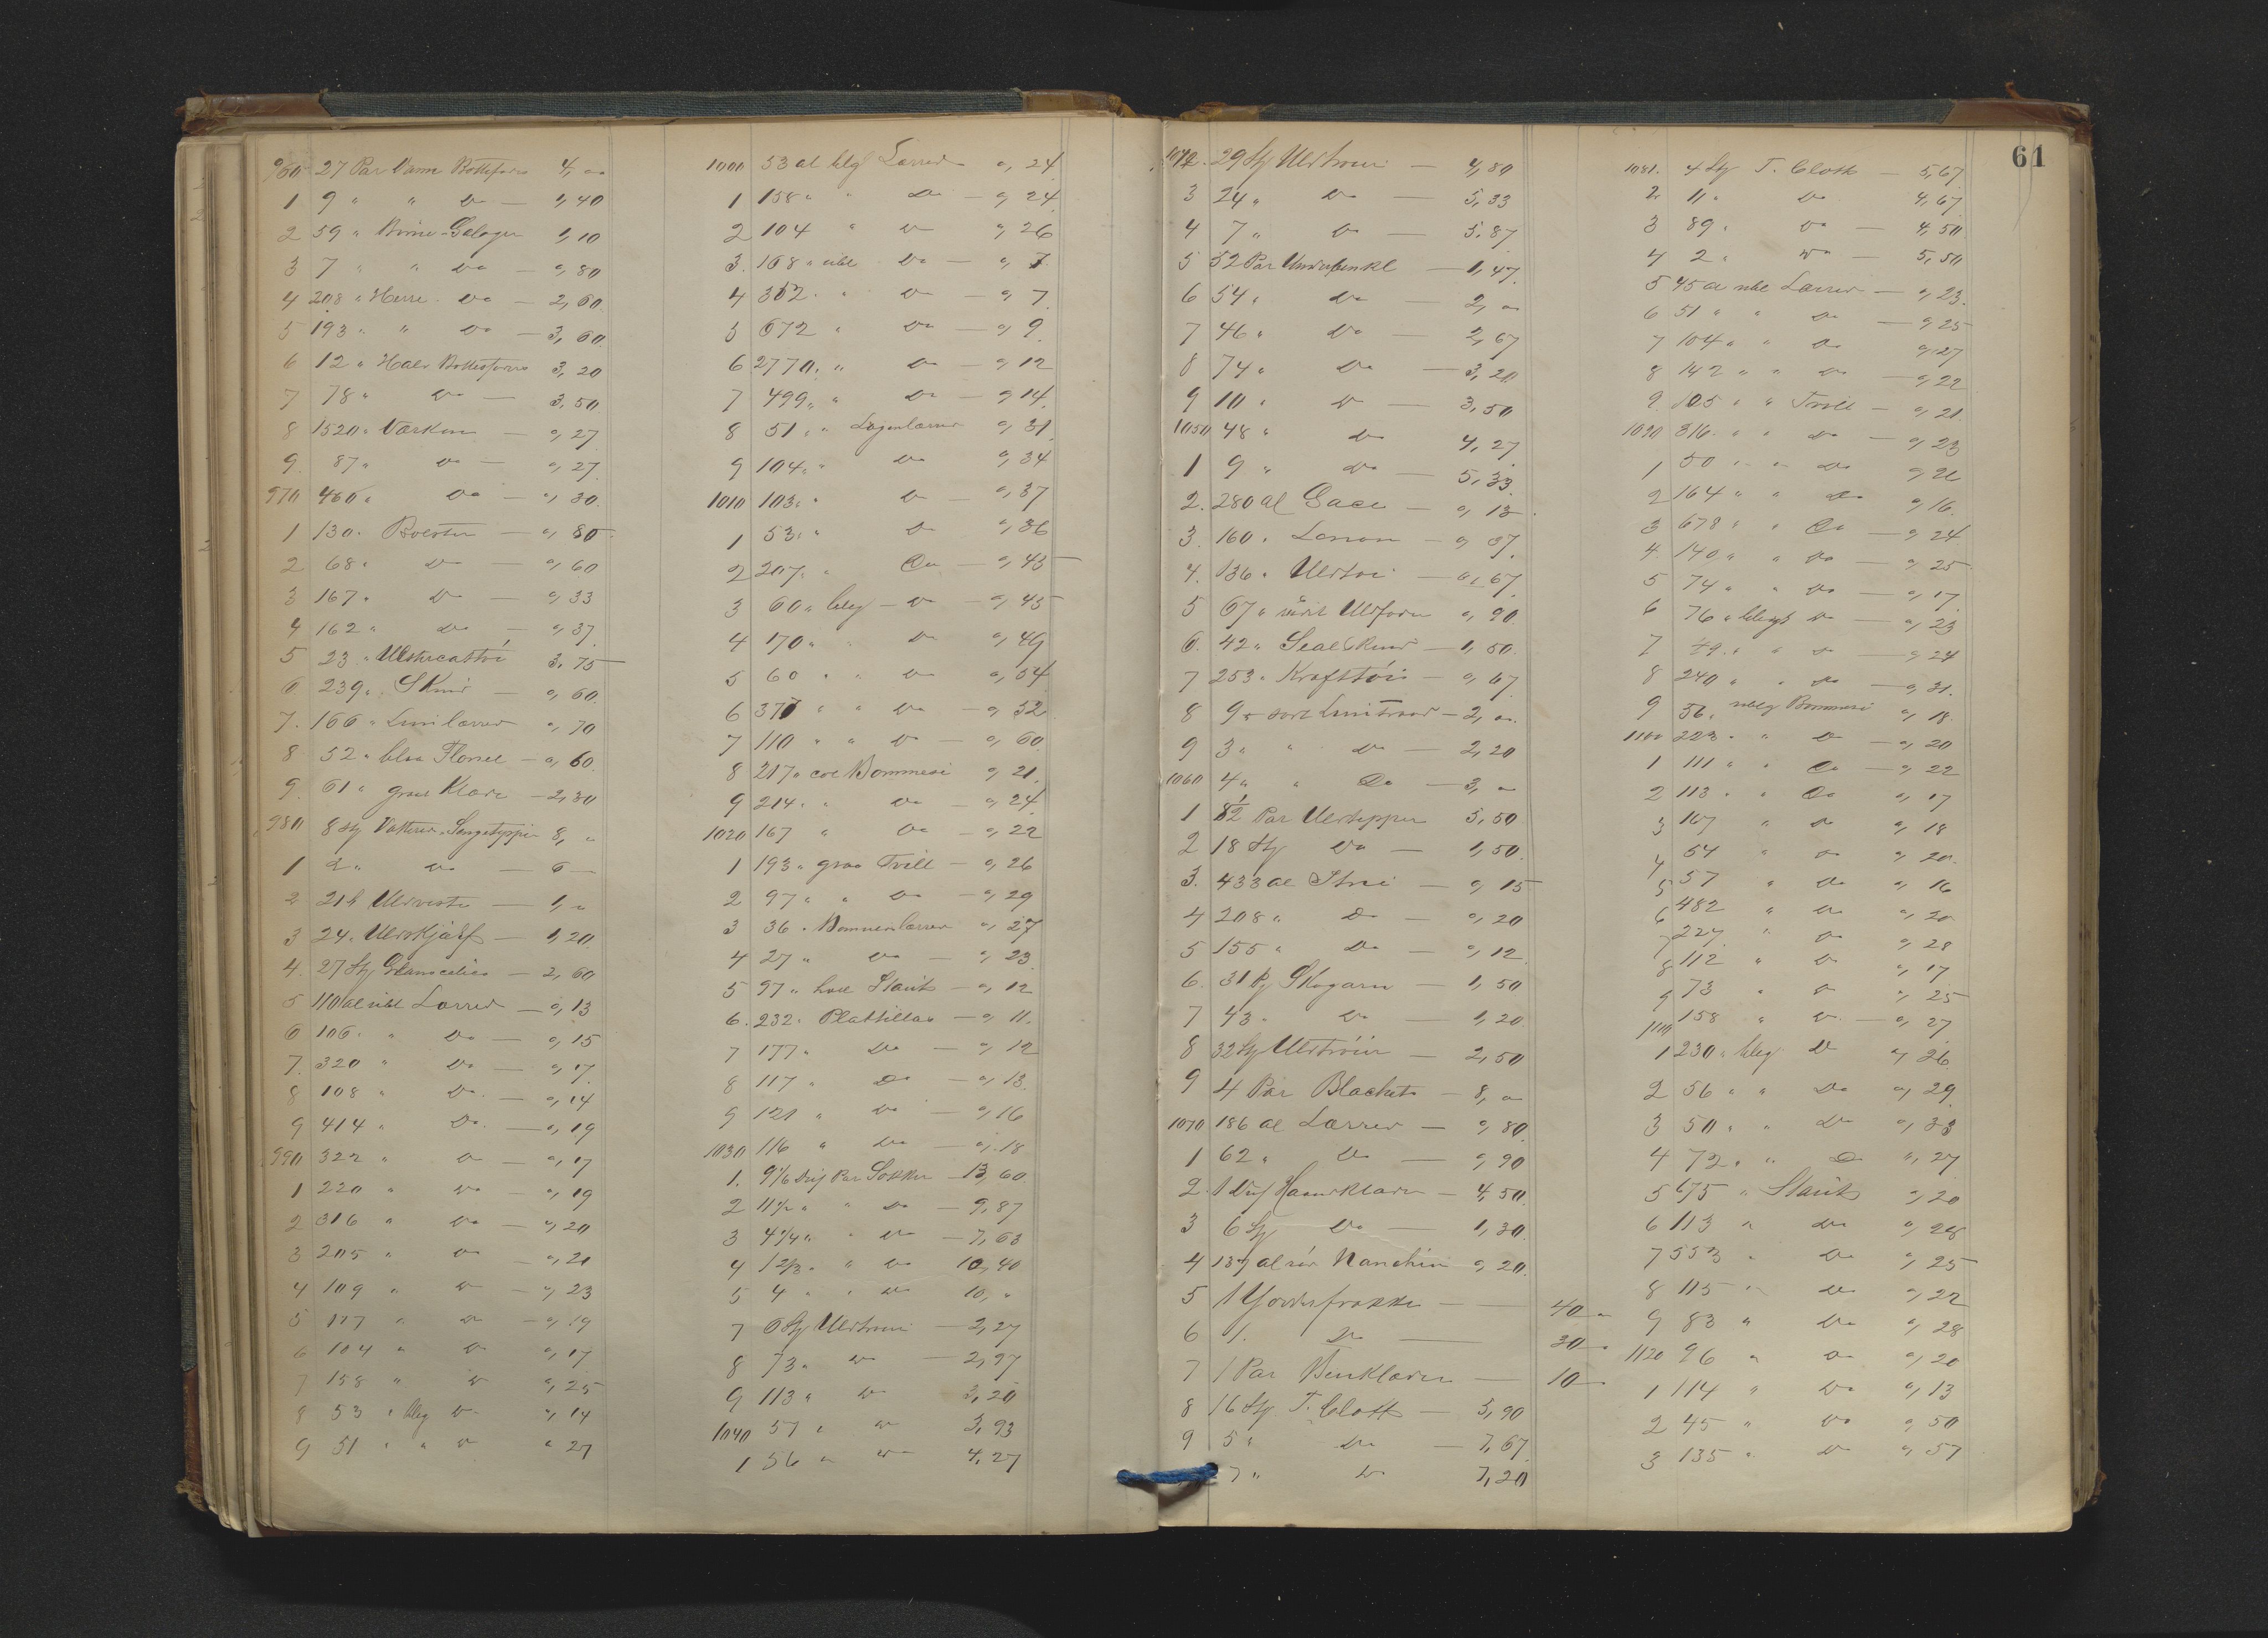 960 27 Par Dame Bottforer 4, "
1 9 " " Do — 1,40
2 59 " Börne-Galoger 1,10
3 7 " " Do — 0,80
4 208 " Herre Do — 2,60
5 193 " " Do — 3,60
6 12 " Halv Bottesforer 3,20
7 78 " Do — 3,50
8 1520 " Værken — 0,27
9 87 " Do — 0,27
970 460 " Do — 0,30
1 130 " Bolster — 0,80
2 68 " Do — 0,60
3 167 " Do — 0,33
4 162 " Do — 0,37
5 23 " 3,75
6 239 " Skind — 0,60
7 166 " Linlærred 0,70
8 52 " blaa Flonel — 0,60
9 61 " graat Klæde — 2,30
980 8 Stk Vatterede Sengetepper 8, "
1 2 " Do — 6 —
2 21 " Uldveste — 1, "
3 24 " Uldskjærf — 1,20
4 27 Stk — 2,60
5 110 al ubl Lærred — 0,13
6 106 " Do — 0,15
7 320 " Do — 0,17
8 108 " Do — 0,14
9 414 " Do — 0,19
990 322 " Do — 0,17
1 220 " Do — 0,19
2 316 " Do — 0,20
3 205 " Do — 0,21
4 109 " Do — 0,23
5 117 " Do — 0,19
6 104 " Do 0,17
7 158 " Do 0,25
8 53 " bleg Do 0,14
9 51 " " Do " 27
1000 53 al blgt Lærred 0,24
1 158 " " Do — 0,24
2 104 " Do — 0,26
3 168 " ubl Do — 0,7
4 352 " " Do — 0,7
5 672 " Do — 0,9
6 2770 " " Do — 0,12
7 499 " " Do — 0,14
8 51 " " Lagenlærred 0,31
9 104 " " Do 0,34
1010 103 " " Do — 0,37
1 53 " " Do 0,36
2 207 " " Do — 0,45
3 60 " bleg — Do — 0,45
4 170 " " Do 0,49
5 60 " " Do 0,54
6 377 " " Do — 0,52
7 110 " " Do — 0,60
8 217 " col Bommesi 0,21
9 214 " " Do — 0,24
1020 167 " Do — 0,22
1 193 " graa Tvill — 0,26
2 97 " " Do — 0,29
3 36 " Bommesilærred 0,27
4 27 " Do — 0,23
5 97 " hvid Stauts — 0,12
6 232 " Plattillas — 0,11
7 177 " Do — 0,12
8 117 " Do — 0,13
9 121 " Do — 0,16
1030 116 " Do — 0,18
1 9 1/6 Dus Par Sokker — 13,60
2 11 1/2 " " Do — 9,87
3 4 1/4 " " Do — 7,63
4 1 2/3 " " Do 10,40
5 4 " " Do 10, "
7 6 Stk Uldtroier — 2,27
8 73 " Do — 2,97
9 113 " Do 3,20
1040 57 " Do 3,93
1 56 " Do 4,27
61
1042 29 Stk Uldtroier — 4,80
3 24 " Do — 5,33
4 7 " Do — 5,87
5 52 Par Underbenkl — 1,47
6 54 " Do — 2, "
7 46 " Do — 2,67
8 74 " Do — 3,20
9 10 " Do — 3,50
1050 48 " Do 4,27
1 9 " Do — 5,33
2 280 al Gace — 0,13
3 160 " — 0,37
4 136 " Uldtöi — 0,67
5 67 " Uldfoder 0,90
6 42 " Sealskind — 1,50
7 253 " Krafttöi — 0,67
8 9 " sort — 2, "
9 3 " " Do — 2,20
1060 4 " " Do — 3, "
1 8 1/2 Par Uldtepper 3,50
2 18 Stk Do — 1,50
3 433 al Strie — 0,15
4 208 " Do — 0,20
5 155 " Do — 0,12
6 31 Skogarn — 1,50
7 43 " Do — 1,20
8 32 Stk Uldtröier — 2,50
9 4 Par Blackets — 8, "
1070 186 al Lærred — 0,80
1 62 " Do — 0,90
2 1 Dus Haandklæder — 4,50
3 6 Stk Do — 1,30
4 137 al Nanchin 0,20
5 1 Yderfrakke — 40 "
6 1 " Do — 30 "
7 1 Par Benklæder — 10 —
8 16 Stk T. Cloth — 3,90
9 5 " Do — 7,67
7 " Do 7,20
1081 4 Stk T. Cloth — 5,67
2 11 " Do 4,67
3 89 " Do — 4,50
4 2 " Do — 5,50
5 45 al ubl Lærred — 0,23
6 51 " " Do — 0,25
7 104 " " Do 0,27
8 142 " " Do — 0,22
9 105 " " Tvill — 0,21
1090 316 " " Do — 0,23
1 50 " " Do 0,21
2 164 " " Do 0,16
3 678 " " Do — 0,24
4 140 " " Do — 0,25
5 74 " " Do — 0,17
6 76 " blegt Do — 0,23
7 49 " " Do — 0,24
8 240 " " Do — 0,31
9 56 " ubleg Bommesi 0,18
1100 223 " " Do — 0,20
1 111 " " Do — 0,22
2 113 " " Do 0,17
3 167 " Do 0,18
4 54 " Do 0,20
5 57 " Do 0,16
6 482 " Do 0,20
7 227 " Do 0,28
8 112 " Do 0,17
9 73 " Do 0,25
1110 158 " Do — 0,27
1 230 " bleg Do 0,26
2 56 " " Do 0,29
3 50 " " Do 0,33
4 72 " " Do 0,27
5 675 " Stauts 0,20
6 113 " Do 0,28
7 553 " Do 0,25
8 115 " Do 0,22
9 83 " Do 0,28
1120 96 " Do 0,20
1 114 " Do 0,13
2 45 " Do 0,50
3 135 " Do 0,57